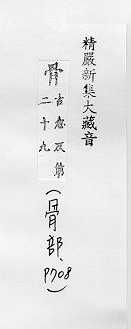 精嚴新集大藏音
骨 古忽反第
二十九
（骨部，P708）